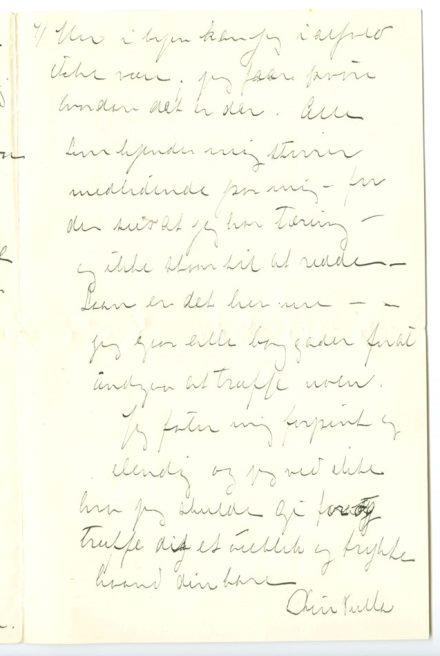 4/ Her i byen kan jeg i alfald
ikke være. jeg faar prøve
hvordan det er der. Alle
som kjender mig stirrer
medlidende paa mig – for
de sier at jeg har tæring –
og ikke staar til at redde –
Saan er det her nu – –
jeg gaar alle baggader forat
undgaa at træffe noen.
Jeg føler mig forpint og
elendig og jeg ved ikke
hva jeg skulde gi for
træffe dig et øieblik og trykke
haand din bare
Din Tulla